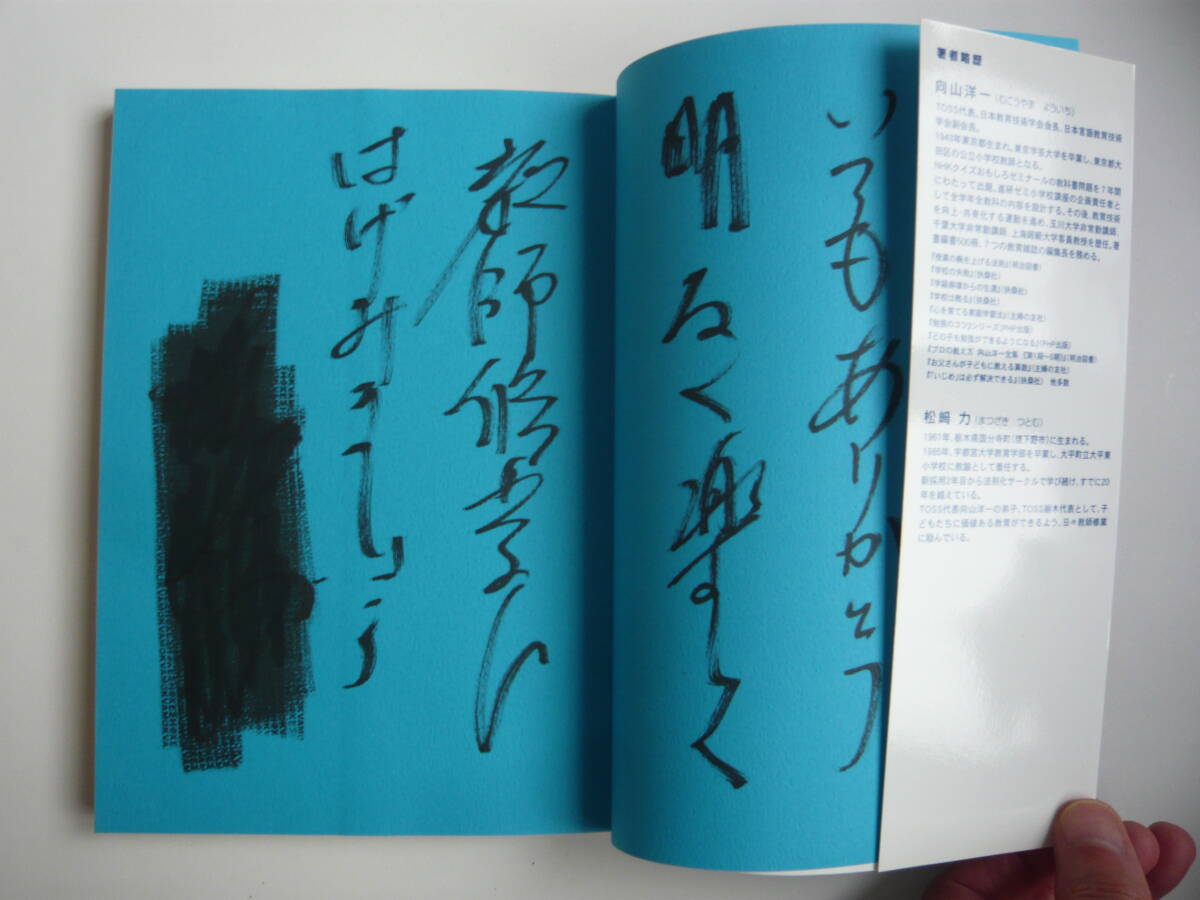 著者略歴
向山洋一(むこうやま よういち)
TOSS代表。日本教育技術学会会長、日本言語教育技術
学会副会長。
1943年東京都生まれ。東京学芸大学を卒業し、東京都大
田区の公立小学校教師となる。
NHKクイズおもしろゼミナールの教科書問題を7年間
にわたって出題。進研ゼミ小学校講座の企画責任者と
して全学年全教科の内容を設計する。その後、教育技術
を向上・共有化する運動を進め、玉川大学非常勤講師、
千葉大学非常勤講師、上海師範大学客員教授を歴任。著
書編書500冊、7つの教育雑誌の編集長を務める。
『授業の腕を上げる法則』(明治図書)
『学校の失敗』(扶桑社)
『学級崩壊からの生還』(扶桑社)
『学校は甦る』(扶桑社)
『心を育てる家庭学習法』(主婦の友社)
『勉強のコツ』シリーズ(PHP出版)
『どの子も勉強ができるようになる』(PHP出版)
『プロの教え方 向山洋一全集
『お父さんが子どもに教える算数』(主婦の友社)
『「いじめ」は必ず解決できる』(扶桑社) 他多数
松﨑 力(まつざき つとむ)
1961年、栃木県国分寺町(現下野市)に生まれる。
1985年、宇都宮大学教育学部を卒業し、大平町立大平東
小学校に教諭として着任する。
新採用2年目から法則化サークルで学び続け、すでに20
年を越えている。
TOSS代表向山洋一の弟子、TOSS栃木代表として、子
どもたちに価値ある教育ができるよう、日々教師修業
に励んでいる。
いつもありがとう
明るく楽しく
教師修業に
はげみましょう